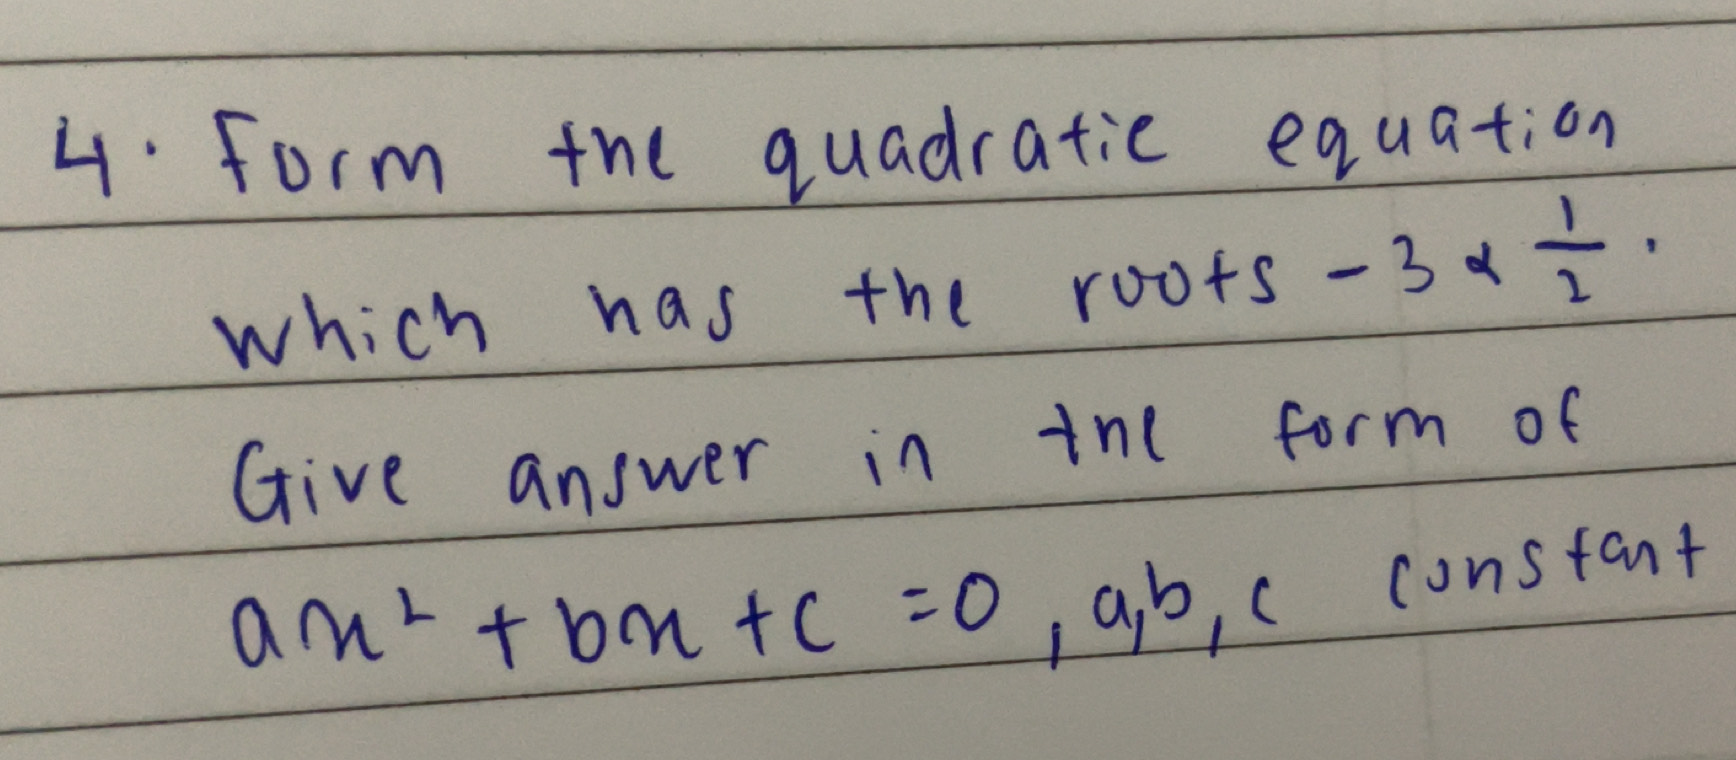 4. Form the quadratic equation
which has the roots -3 & 1/2.
Give answer in the form of
ax² + bx + c = 0, a, b, c constant